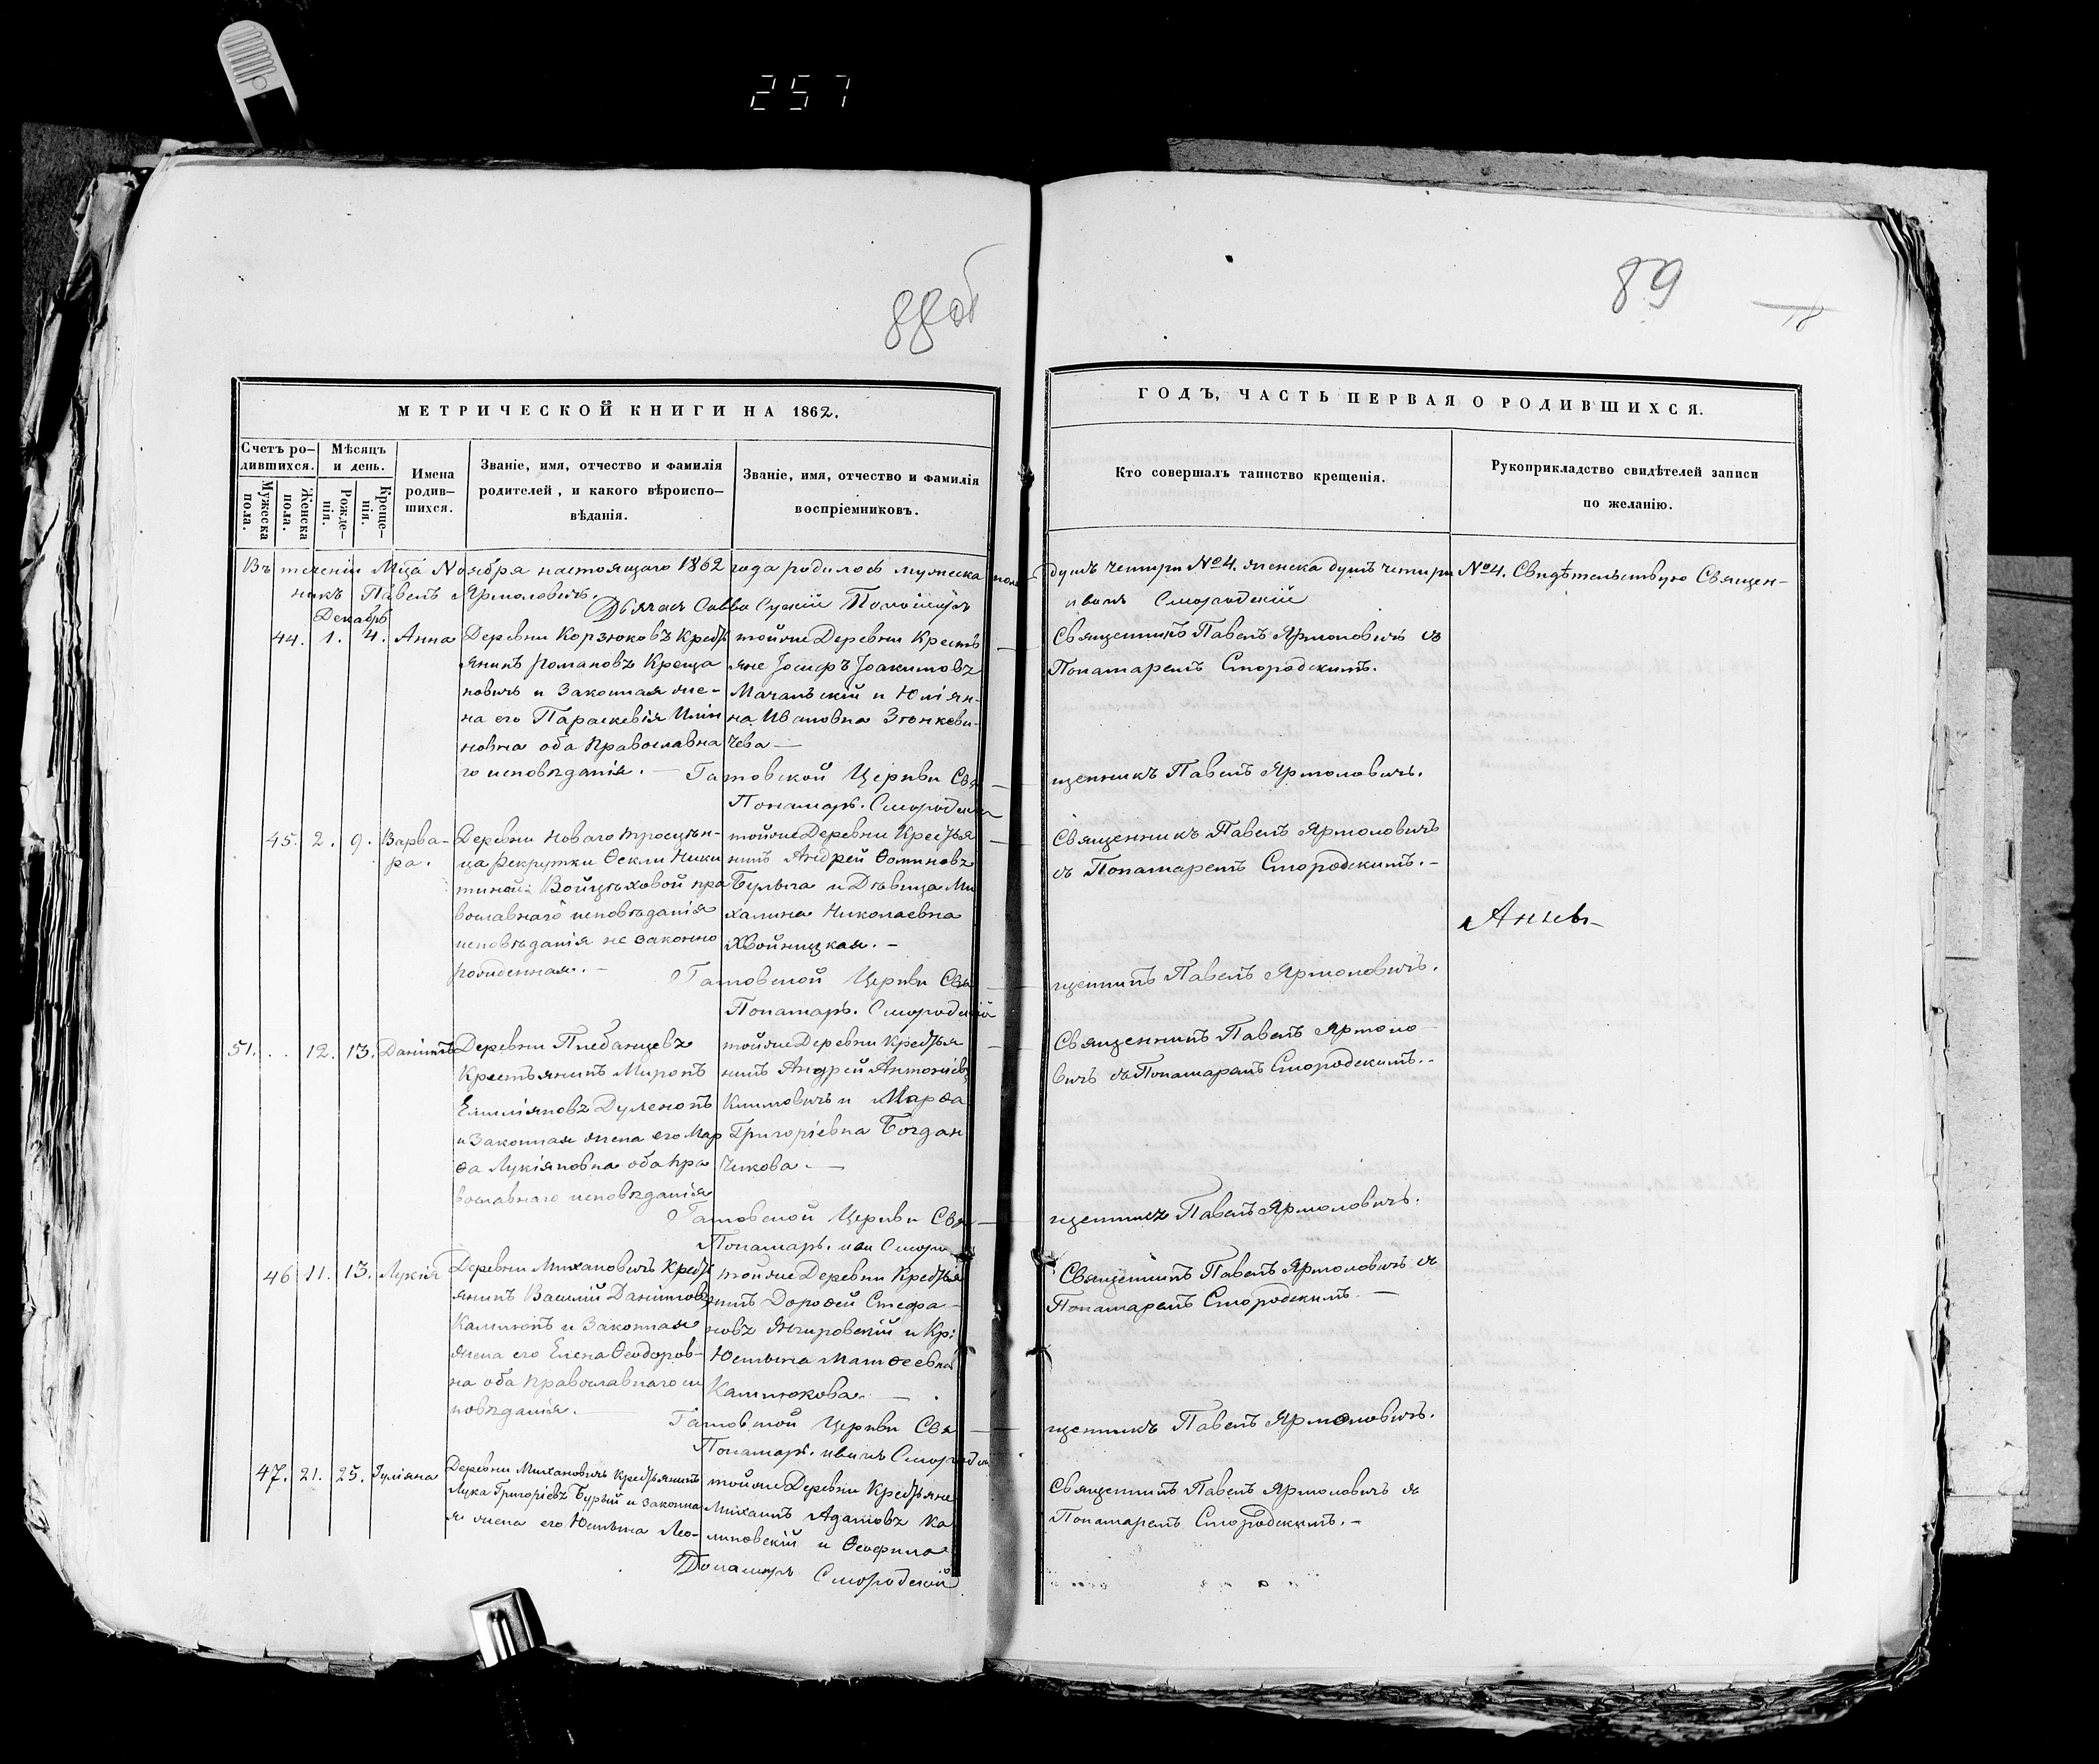 257
88об
89
18
МЕТРИЧЕСКОЙ КНИГИ НА 1862.
ГОДЪ, ЧАСТЬ ПЕРВАЯ О РОДИВШИХСЯ.
Счетъ ро-
дившихся.
Мѣсяцъ
и день.
Мужеска
пола.
Женска
пола.
Рожде-
нія.
Креще-
нія.
Имена
родив-
шихся.
Званіе, имя, отчество и фамилія
родителей, и какого вѣроиспо-
вѣданія.
Званіе, имя, отчество и фамилія
воспріемниковъ.
Кто совершалъ таинство крещенія.
Рукоприкладство свидѣтелей записи
по желанію.
Въ теченіи Мца Ноября настоящаго 1862 года родилось мужеска пола душъ четыри №4. женска душъ четыри №4. Свидѣтельствую Священ-
никъ Павелъ Ярмоловичъ.
Дьячъ Савва Пономарь
Иванъ Смородскій
Декабрь
44. 1. 4. Анна
Деревни Корзюковъ Кресть
янинъ Романовъ Креща
новичъ и Законная же-
на его Параскевія Илін
новна оба Православна
го исповѣданія. —
тойже Деревни Кресть
яне Іосифъ Іоакимовъ
Мачальскій и Юліян-
на Ивановна Зѣнкеви-
чева —
Священникъ Павелъ Ярмоловичъ съ
Понамаремъ Смородскимъ.
Гатовской Церкви Свя
щенникъ Павелъ Ярмоловичъ.
Понамарь. Смородскій
45. 2. 9. Варва-
ра.
Деревни Новаго Тросцѣн-
ца рекрутки Ѳекли Ники
тиной Войцѣховой пра
вославнаго исповѣданія
исповѣданія не законно
рожденная. —
тойже Деревни Крестья
нинъ Андрей Ѳоминовъ
Булыга и Дѣвица Ми
халина Николаевна
Хвойницкая. —
Священникъ Павелъ Ярмоловичъ
съ Понамаремъ Смородскимъ. —
Гатовской Церкви Свя
щенникъ Павелъ Ярмоловичъ.
Понамарь. Смородскій
51. . . 12. 13. Даніилъ
Деревни Плебанцевъ
Крестьянинъ Миронъ
Емиліяновъ Дуленокъ
и Законная жена его Мар
ѳа Лукіяновна оба пра
вославнаго исповѣданія
тойже Деревни Крестья
нинъ Андрей Антоніевъ
Климовичъ и Марѳа
Григоріевна Богдан
чикова. —
Священникъ Павелъ Ярмоло
вичъ съ Понамаремъ Смородскимъ. —
Гатовской Церкви Свя
щенникъ Павелъ Ярмоловичъ.
Понамарь.
46 11. 13. Лукія
Деревни Михановичъ Кресть
янинъ Василій Даніиловъ
Камлюкъ и Законная
жена его Елена Ѳеодоров-
на оба православнаго ис
повѣданія.
тойже Деревни Крестья
нинъ Дороѳей Стефа-
новъ Янчировскій и Крі
Юстына Матѳеевна
Камлюкова. —
Священникъ Павелъ Ярмоловичъ съ
Понамаремъ Смородскимъ. —
Гатовской Церкви Свя
щенникъ Павелъ Ярмоловичъ.
Понамарь. Иванъ Смородскій
47. 21. 25. Іуліяна
Деревни Михановичъ Крестьянинъ
Лука Григоріевъ Бурый и законна
я жена его Юстына Лео-
тойже Деревни Крестьяне
Михаилъ Адамовъ Ка
линовскій и Ѳеофила
Священникъ Павелъ Ярмоловичъ съ
Понамаремъ Смородскимъ. —
Понамарь Смородскій